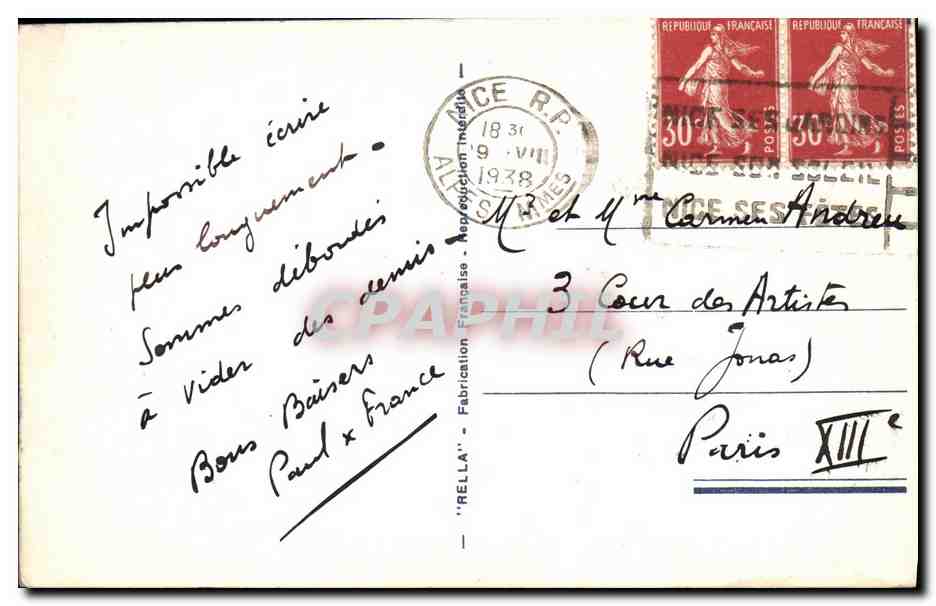 Impossible écrire
plus longuement -
Sommes débordés
à vider des demis -
Bons Baisers
Paul x France
"RELLA" - Fabrication Française - Reproduction Interdite
NICE R.P.
18 30
9 - VIII
1938
ALPES MMES
REPUBLIQUE FRANÇAISE
30c POSTES
REPUBLIQUE FRANÇAISE
30c POSTES
NICE SES JARDINS
NICE SON SOLEIL
NICE SES FÊTES
Mr et Mme Carmen Andreu
3 Cour des Artistes
(Rue Jonas)
Paris XIIIe
CPAPHIL